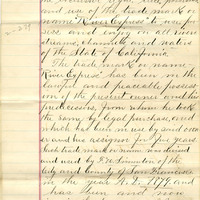 and use of the trade mark or
name "River Express" to
and enjoy on all
streams, channels and waters
of the State of California.
The trade mark or name
"River Express" has been in the
lawful and peaceable possess-
ion of the present owner and his
predecessors, from whom he took
the same by legal purchase, and
which has been in use by said
and his assignor for five years
Said trade mark or name
and used by
City and County of San Francisco
in the year A.D. 1879, and
has been and now